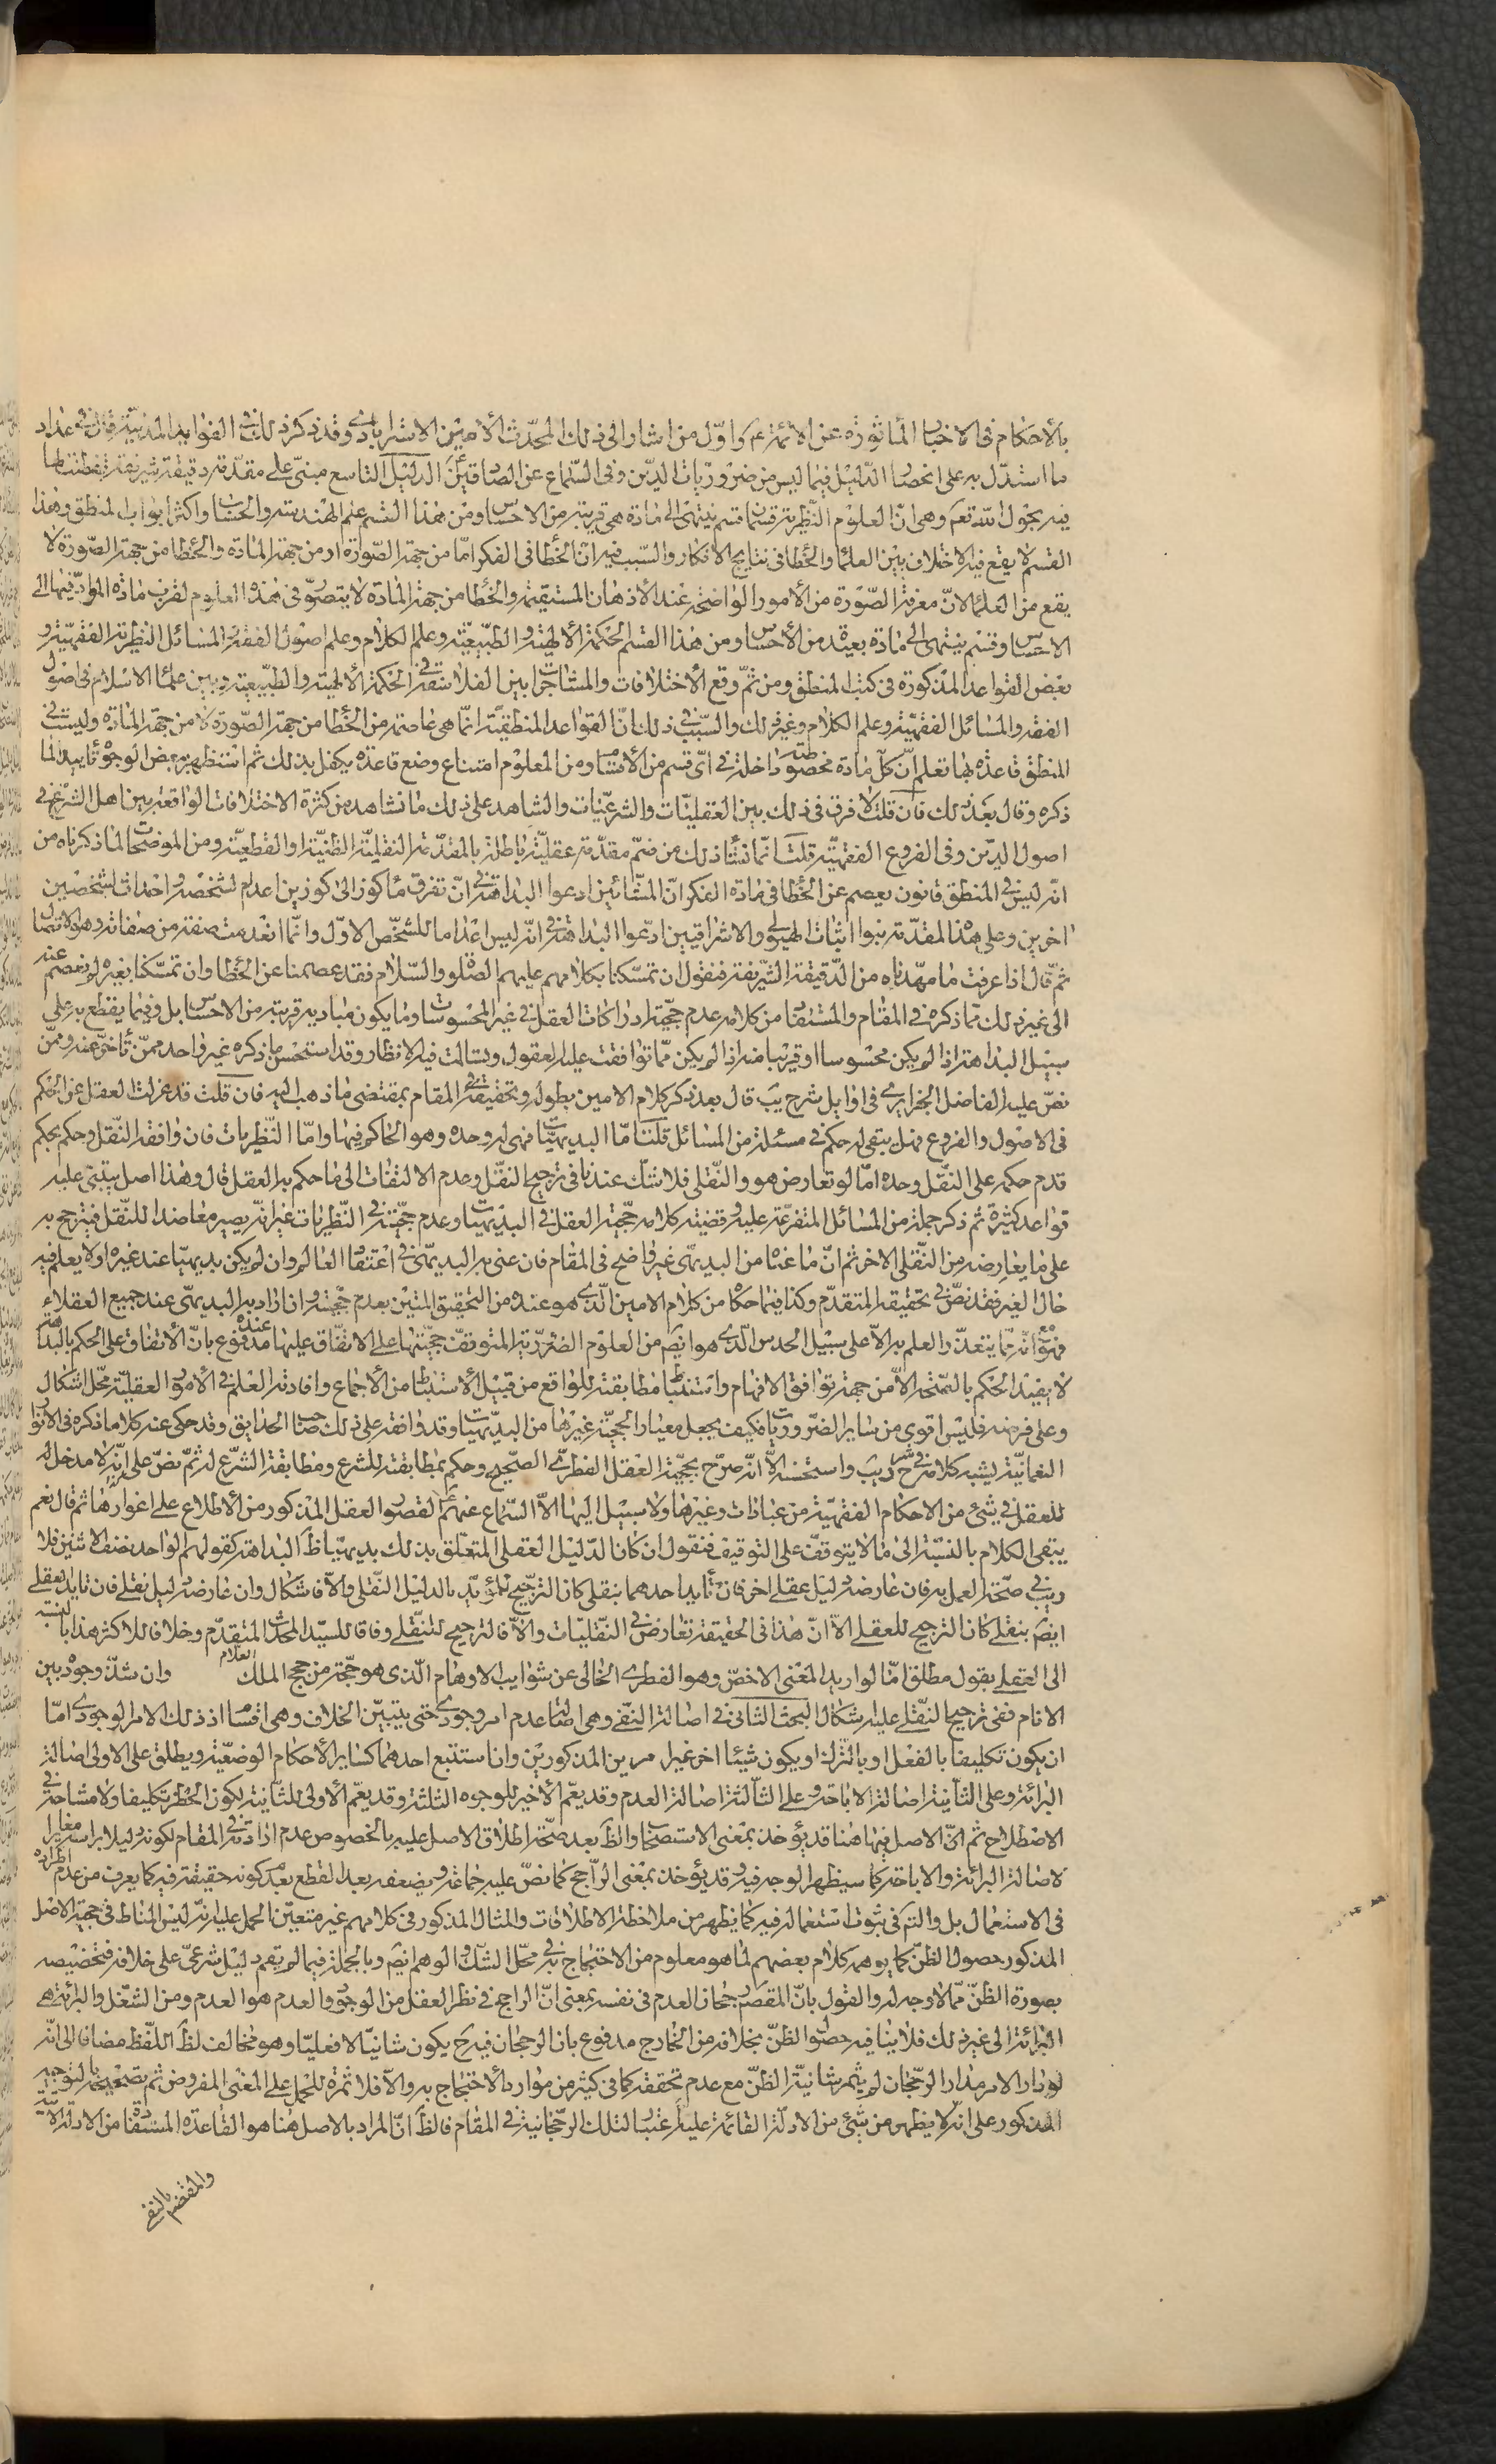 بالاحكام فى الاخبار المأثورة عن الائمة ع و اوّل من اشار الى ذلك المحدّث الأمين الاستراباذى وقد ذكر ذلك فى الفوايد المدنيّة قال فى عداد
ما استدل به على انحصار الدّليل فيما ليس من ضروريّات الدّين وفى السّماع عن الصادقين الدّليل التاسع مبنىّ على مقدّمة دقيقة شريفة تفطنت لها
فيه بحول اللّه تعم وهى انّ العلوم النّظرية قسمان قسم ينتهى الى مادة هى قريبة من الاحساس ومن هذا القسم علم الهندسة والحساب واكثر ابواب المنطق وهذا
القسم لا يقع فيه الاختلاف بين العلماء والخطأ فى نتايج الافكار والسّبب فيه انّ الخطأ فى الفكر امّا من جهة الصّورة او من جهة المادة والخطأ من جهة الصّورة لا
يقع من العلماء لانّ معرفة الصّورة من الأمور الواضحة عند الأذهان المستقيمة والخطأ من جهة المادّة لا يتصوّر فى هذه العلوم لقرب مادة الموادّ فيها الى
الاحساس وقسم ينتهى الى مادة بعيدة من الأحساس ومن هذا القسم الحكمة الألهية والطّبيعيّة وعلم الكلام وعلم اصول الفقه والمسائل النظرية الفقهيّة و
بعض القواعد المذكورة فى كتب المنطق ومن ثمّ وقع الأختلافات والمشاجرات بين الفلاسفة فى الحكمة الألهية والطّبيعيّة وبين علماء الاسلام فى اصول
الفقه والمسائل الفقهيّة وعلم الكلام وغير ذلك والسّبب فى ذلك انّ القواعد المنطقيّة انّما هى عاصمة من الخطأ من جهة الصّورة لا من جهة المادّة وليست فى
المنطق قاعدة بها تعلم انّ كلّ مادة مخصوصة داخلة فى اىّ قسم من الأقسام ومن المعلوم امتناع وضع قاعدة يكفل بذلك ثم استظهر ببعض الوجوه تأييدا لما
ذكره وقال بعد ذلك فان قلت لا فرق فى ذلك بين العقليّات والشرعيّات والشاهد على ذلك ما نشاهد من كثرة الاختلافات الواقعة بين اهل الشرع فى
اصول الدّين وفى الفروع الفقهيّة قلت انّما نشأ ذلك من ضمّ مقدّمة عقليّة باطلة بالمقدّمة النقليّة الظنيّة او القطعيّة ومن الموضحات لما ذكرناه من
انّه ليس فى المنطق قانون يعصم عن الخطأ فى مادة الفكر انّ المشّائين ادعوا البداهة فى انّ تفرق ماء كوز الى كوزين اعدام لشخصه واحداث لشخصين
اخرين وعلى هذا المقدّمة بنوا اثبات الهيولى والاشراقيين ادّعوا البداهة فى انّه ليس اعداما للشخّص الاوّل وانّما انعدمت صفة من صفاته وهو الاتصال
ثمّ قال اذا عرفت ما مهّدناه من الدّقيقة الشّريفة فنقول ان تمسّكنا بكلامهم عليهم الصّلوة والسّلام فقد عصمنا عن الخطأ وان تمسّكنا بغيره لم نعصم عنه
الى غير ذلك ممّا ذكره فى المقام والمستفاد من كلامه عدم حجّية ادراكات العقل فى غير المحسوسات وما يكون مباديه قريبة من الاحساس بل وفيما يقطع به على
سبيل البداهة اذا لم يكن محسوسا او قريبا منه اذا لم يكن ممّا توافقت عليه العقول وتسالمت فيه الانظار وقد استحسن ما ذكره غير واحد ممّن تأخّر عنه وممّن
نصّ عليه الفاضل الجزايرى فى اوايل شرح يب قال بعد ذكر كلام الامين بطوله وتحقيقه فى المقام بمقتضى ما ذهب اليه فان قلت قد عزلت العقل عن الحكم
فى الاصول والفروع فهل يبقى له حكم فى مسئلة من المسائل قلت امّا البديهيّات فهى له وحده وهو الحاكم فيها وامّا النّظريات فان وافقه النّقل وحكم بحكم
قدم حكمه على النّقل وحده امّا لو تعارض هو والنّقلى فلا شك عندنا فى ترجيح النّقل وعدم الالتفات الى ما حكم به العقل قال وهذا اصل يبتنى عليه
قواعد كثيرة ثم ذكر جملة من المسائل المتفرعة عليه وقضية كلامه حجّية العقل فى البديهيات وعدم حجّيته فى النّظريات غير انّه يصير معاضدا للنّقل فيترجح به
على ما يعارضه من النّقلى الاخر ثم انّ ما عناه من البديهى غير واضح فى المقام فان عنى به البديهى فى اعتقاد العالم وان لم يكن بديهيّا عند غيره او لا يعلم فيه
حال الغير فقد نصّ فى تحقيقه المتقدّم وكذا فيما حكاه من كلام الامين الّذى هو عنده من التحقيق المتين بعدم حجّيته وان اراد به البديهى عند جميع العقلاء
فهو مع انّه ممّا يتعذّر العلم به الّا على سبيل الحدس الّذى هو ايضم من العلوم الضرّرية المتوقف حجّيتها على الاتفّاق عليها عنده مدفوع بانّ الأتفاق على الحكم بالبداهة
لا يفيد الحكم بالصّحة الّا من جهة توافق الافهام واستنباط مطابقته للواقع من قبيل الأستنباط من الأجماع وافادته العلم فى الأمور العقليّة محّل اشكال
وعلى فرضه فليس اقوى من ساير الضّروريات فكيف يجعل معيار الحجّية غيرها من البديهيّات وقد وافقه على ذلك صاحب الحدايق وقد حكى عنه كلاما ذكره فى الانوار
النعمانيّة يشبه كلامه فى شرح يب واستحسنه الّا انّه صرّح بحجّية العقل الفطرىّ الصّحيح وحكم بمطابقته للشرع ومطابقة الشّرع له ثمّ نصّ على انّه لا مدخل له
للعقل فى شئ من الاحكام الفقهيّة من عبادات وغيرها ولا سبيل اليها الّا السّماع عنهم ع لقصور العقل المذكور من الأطلاع على اغوارها ثم قال نعم
يبقى الكلام بالنسبة الى ما لا يتوقف على التوقيف فنقول ان كان الدّليل العقلى المتعلّق بذلك بديهيّا ظ البداهة كقولهم الواحد نصف الاثنين فلا
ريب فى صحّة العمل به فان عارضه دليل عقلى اخر فان تأيد احدهما بنقلى كان التّرجيح للمؤيّد بالدليل النّقلى والّا فاشكال وان عارضه دليل نقلى فان تأيد العقلى
ايضم بنقلى كان الترجيح للعقلى الّا انّ هذا فى الحقيقة تعارض فى النّقليات والّا فالترجيح للنّقلى وفاقا للسّيد المحدّث المتقدّم وخلافا للاكثر هذا بالنسبة
الى العقلى بقول مطلق امّا لو اريد المعنى الاخصّ وهو الفطرى الخالى عن شوايب الاوهام الّذى هو حجّة من حجج الملك العلام وان شذّ وجوده بين
الانام ففى ترجيح النّقلى عليه اشكال البحث الثانى فى اصالة النّفى وهى اصالة عدم امر وجودى حتى يتبيّن الخلاف وهى اقسام اذ ذلك الامر الوجودى امّا
ان يكون تكليفا بالفعل او بالتّرك او يكون شيئا اخر غير الامرين المذكورين وان استتبع احدهما كساير الأحكام الوضعيّة ويطلق على الاولى اصالة
البرائة وعلى الثّانية اصالة الاباحة وعلى الثّالثة اصالة العدم وقد يعمّ الأخير للوجوه الثلثة وقد يعمّ الأولى للثّانية لكون الحظر تكليفا ولا مشاحة فى
الاصطلاح ثم انّ الاصل فيها هنا قد يؤخذ بمعنى الاستصحاب والظ بعد صحّة اطلاق الاصل عليه بالخصوص عدم ارادته فى المقام لكونه دليلا براسه مغايرا
لاصالة البرائة والاباحة كما سيظهر الوجه فيه وقد يؤخذ بمعنى الرّاجح كما نصّ عليه جماعة ويضعفه بعد القطع بعدم كونه حقيقة فيه كما يعرف من عدم اطراده
فى الاستعمال بل والتم فى ثبوت استعماله فيه كما يظهر من ملاحظة الاطلاقات والمثال المذكور فى كلامهم غير متعيّن الحمل عليه انّه ليس المناط فى حجية الاصل
المذكور حصول الظّن كما يوهمه كلام بعضهم لما هو معلوم من الاحتجاج به فى محّل الشّك والوهم ايضم وبالجملة فيما لم يقم دليل شرعىّ على خلافه فتخصيصه
بصورة الظّنّ ممّا لا وجه له والقول بانّ المقصود رجحان العدم فى نفسه بمعنى انّ الراجح فى نظر العقل من الوجود والعدم هو العدم ومن الشغل والبرائة هى
البرائة الى غير ذلك فلا ينافيه حصول الظّن بخلافه من الخارج مدفوع بان الرجحان فيه ح يكون شانيّا لا فعليّا وهو مخالف لظ اللّفظ مضافا الى انّه
لو دار الامر مدار الرّجحان لم يثمر شانيّة الظّنّ مع عدم تحققه كما فى كثير من موارد الأحتجاج به والّا فلا ثمرة للحمل على المعنى المفروض ثم تصحيحه بالتوجيه
المذكور على انّه لا يظهر من شئ من الادلّة القائمة عليه اعتبار لتلك الرّجحانية فى المقام فالظ انّ المراد بالاصل هنا هو القاعدة المستفادة من الادلة الآتية
والمقتضية للنفى